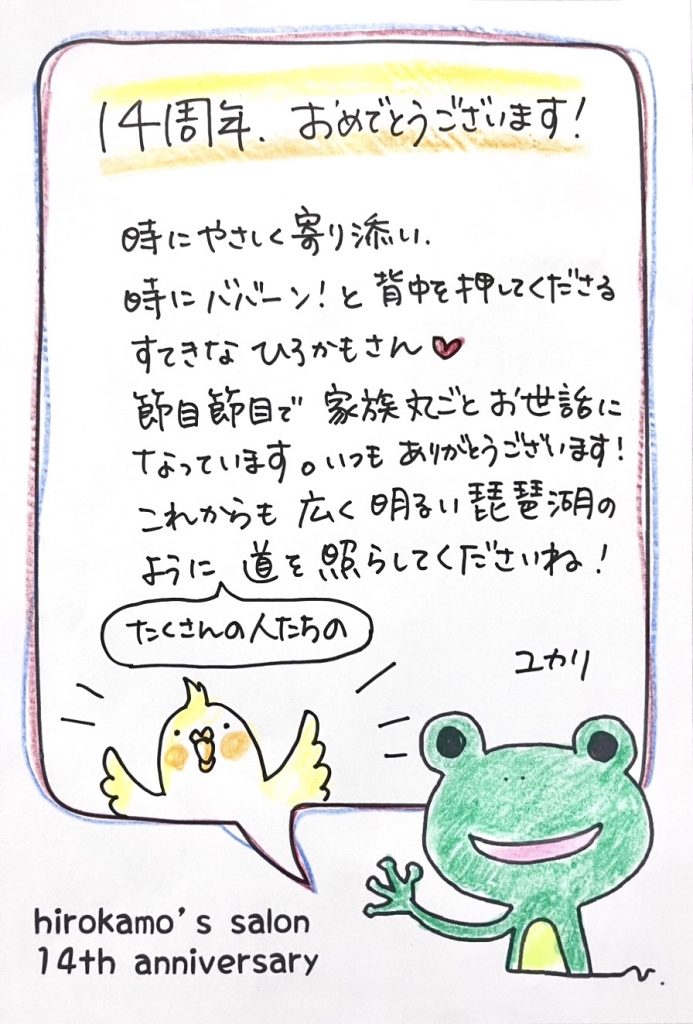 14周年、おめでとうございます!
時にやさしく寄り添い、
時にババーン!と背中を押してくださる
すてきな ひろかもさん♥
節目節目で 家族丸ごとお世話に
なっています。いつも ありがとうございます!
これからも 広く 明るい 琵琶湖の
ように 道を 照らしてくださいね!
たくさんの人たちの
ユカリ
hirokamo's salon
14th anniversary